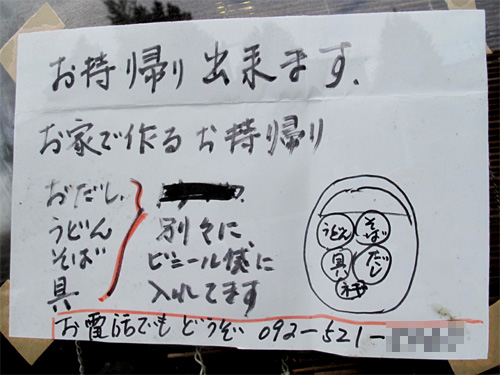 お持ち帰り出来ます.
お家で作るお持帰り
おだし.
うどん
そば
具
別々に
ビニール袋に
入れてます
うどん
そば
具
だし
ネギ
お電話でもどうぞ 092-521-